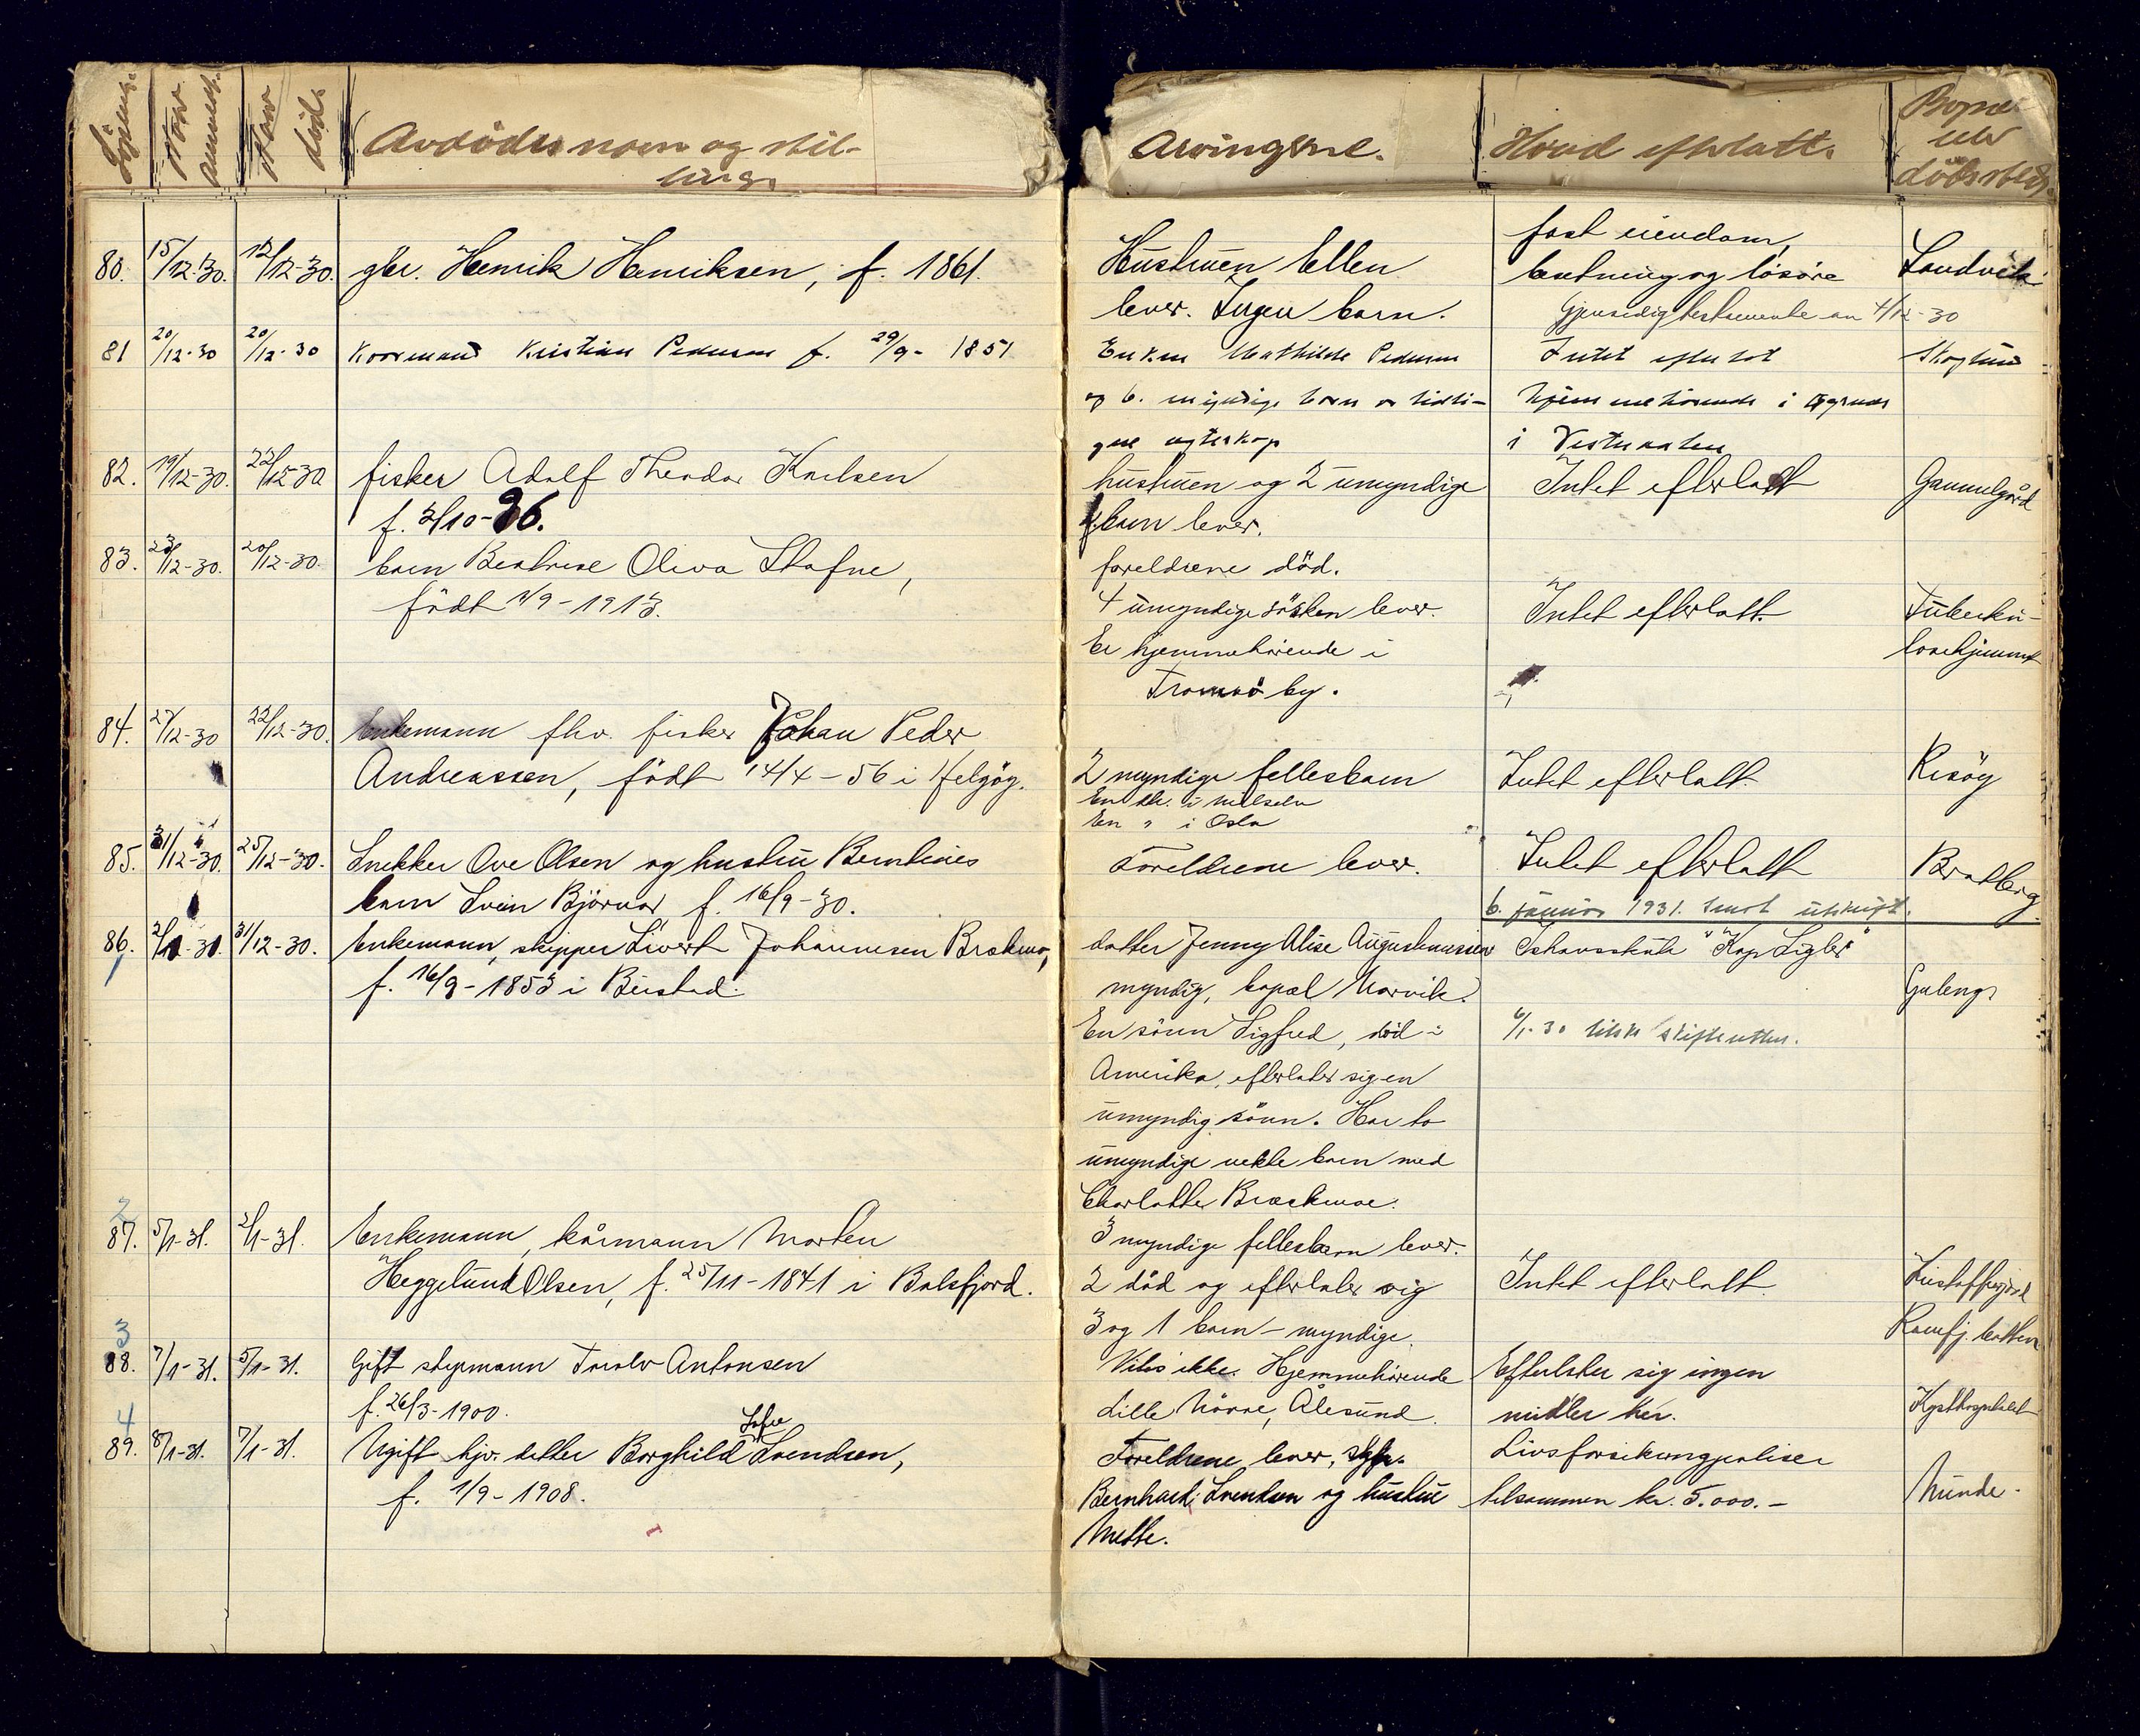 Löpenr.
Naar anmeldt.
Naar död.
Avdödes navn og stil-
ling.
Arvingerne.
Hvad efterlatt.
Bopæl
eller
dödssted.
80. 15/12-30. 12/12-30. gbr. Henrik Henriksen, f. 1861.
Hustruen Ellen
lever. Ingen barn.
fast eiendom,
besetning og lösöre
Gjensidig testamente av 4/12-30
Sandvik
81 20/12-30 20/12-30 Kaarmand Kristian Pedersen f. 29/9-1851
Enken Mathilde Pedersen
og 6. myndige barn av tidli-
gere egteskap
Intet efterlat
hjemmehörende i
i Vesteraalen
Skoglund
82. 19/12-30. 22/12-30 fisker Adolf Theodor Karlsen
f. 3/10-96.
hustruen og 2 umyndige
barn lever.
Intet efterlatt
Gammelgård
83. 23/12-30. 20/12-30. barn Beatrise Oliva Stafne,
födt 1/9-1913.
foreldrene död.
4 umyndige sösken lever.
Er hjemmehörende i
Tromsö by.
Intet efterlatt.
Tuberku-
losehjemmet
84. 27/12-30 22/12-30. Enkemann fhv. fisker Johan Peder
Andreassen, födt 14/4-56 i Helgöy.
2 myndige fellesbarn
En dtr. i Melselv
En " i Oslo
Intet efterlatt.
Risöy
85. 31/12-30. 25/12-30. Snekker Ove Olsen og hustru Berntines
barn Svein Björnar, f. 16/9-30.
Foreldrene lever.
Intet efterlatt
Bratberg.
6. januar 1931. Sendt utskrift.
86. 2/1-31. 31/12-30. Enkemann, skipper Sivert Johannesen Brækmo,
f. 16/9-1853 i Beistad.
1
datter Jenny Alise Augustinussen
myndig, bopæl Narvik.
En sönn Sigfred, död i
Amerika, efterlater sig en
umyndig sönn. Har to
umyndige uekte barn med
Charlotte Brækmoe.
Ishavsskute "Kap Fligley"
6/1-30 tilsk skifteretten.
Galeng.
2
87. 5/1-31. 2/1-31 Enkemann, kårmann Morten
Heggelund Olsen, f. 25/11-1841 i Balsfjord.
3 myndige fellesbarn lever.
2 död og efterlater sig
3 og 1 barn - myndige.
Intet efterlatt.
Kristoffergjord
Ramfj. botten
3
88. 7/1-31. 5/1-31. Gift styrmann Torolv Antonsen
f. 26/3-1900.
Vites ikke. Hjemmehörende
Lille Nörve, Ålesund.
Efterlater sig ingen
midler her.
Kysthospitalet
4
89. 8/1-31. 7/1-31. Ugift hjv. datter Borghild Sofie Svendsen,
f. 1/9-1908.
Foreldrene lever,
Bernhard Svendsen og hustru
Mette.
Livsforsikringspoliser
tilsammen kr. 5.000.-
Minde.